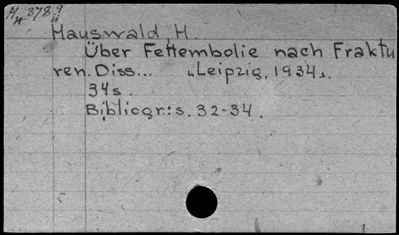 Hauswald, H.
Über Fettembolie nach Fraktu
ren. Diss... „Leipzig, 1934".
34s.
Bibliogr.: s. 32-34.